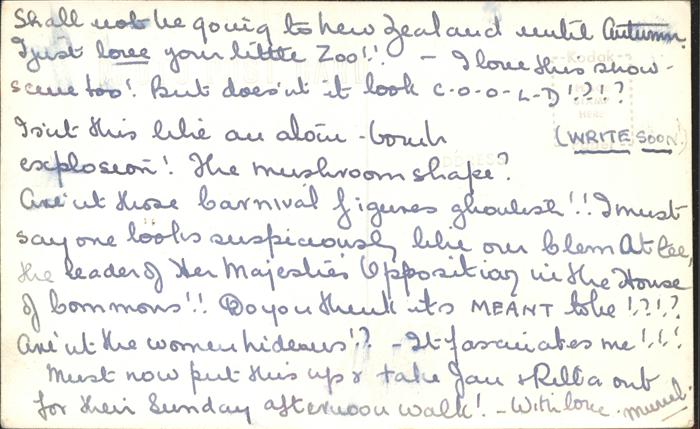 Shall not be going to New Zealand until Autumn.
I just love your little Zoo!! — I love this snow-
scene too! But does'nt it look C-O-O-L-D!?!?
Is'nt this like an atom-bomb (WRITE SOON)
explosion! The mushroom shape?
Are'nt those Carnival figures ghoulish!! I must
say one looks suspiciously like our Clem Atlee,
the leader of Her Majestie's Opposition in the House
of Commons!! Do you think its MEANT to be!?!?
Are'nt the women hideous!? - It fascinates me!!!
Must now put this up & take Jan & Rilla out
for their Sunday afternoon walk! - With love. Muriel.
Kodak
STAMP
HERE
ADDRESS